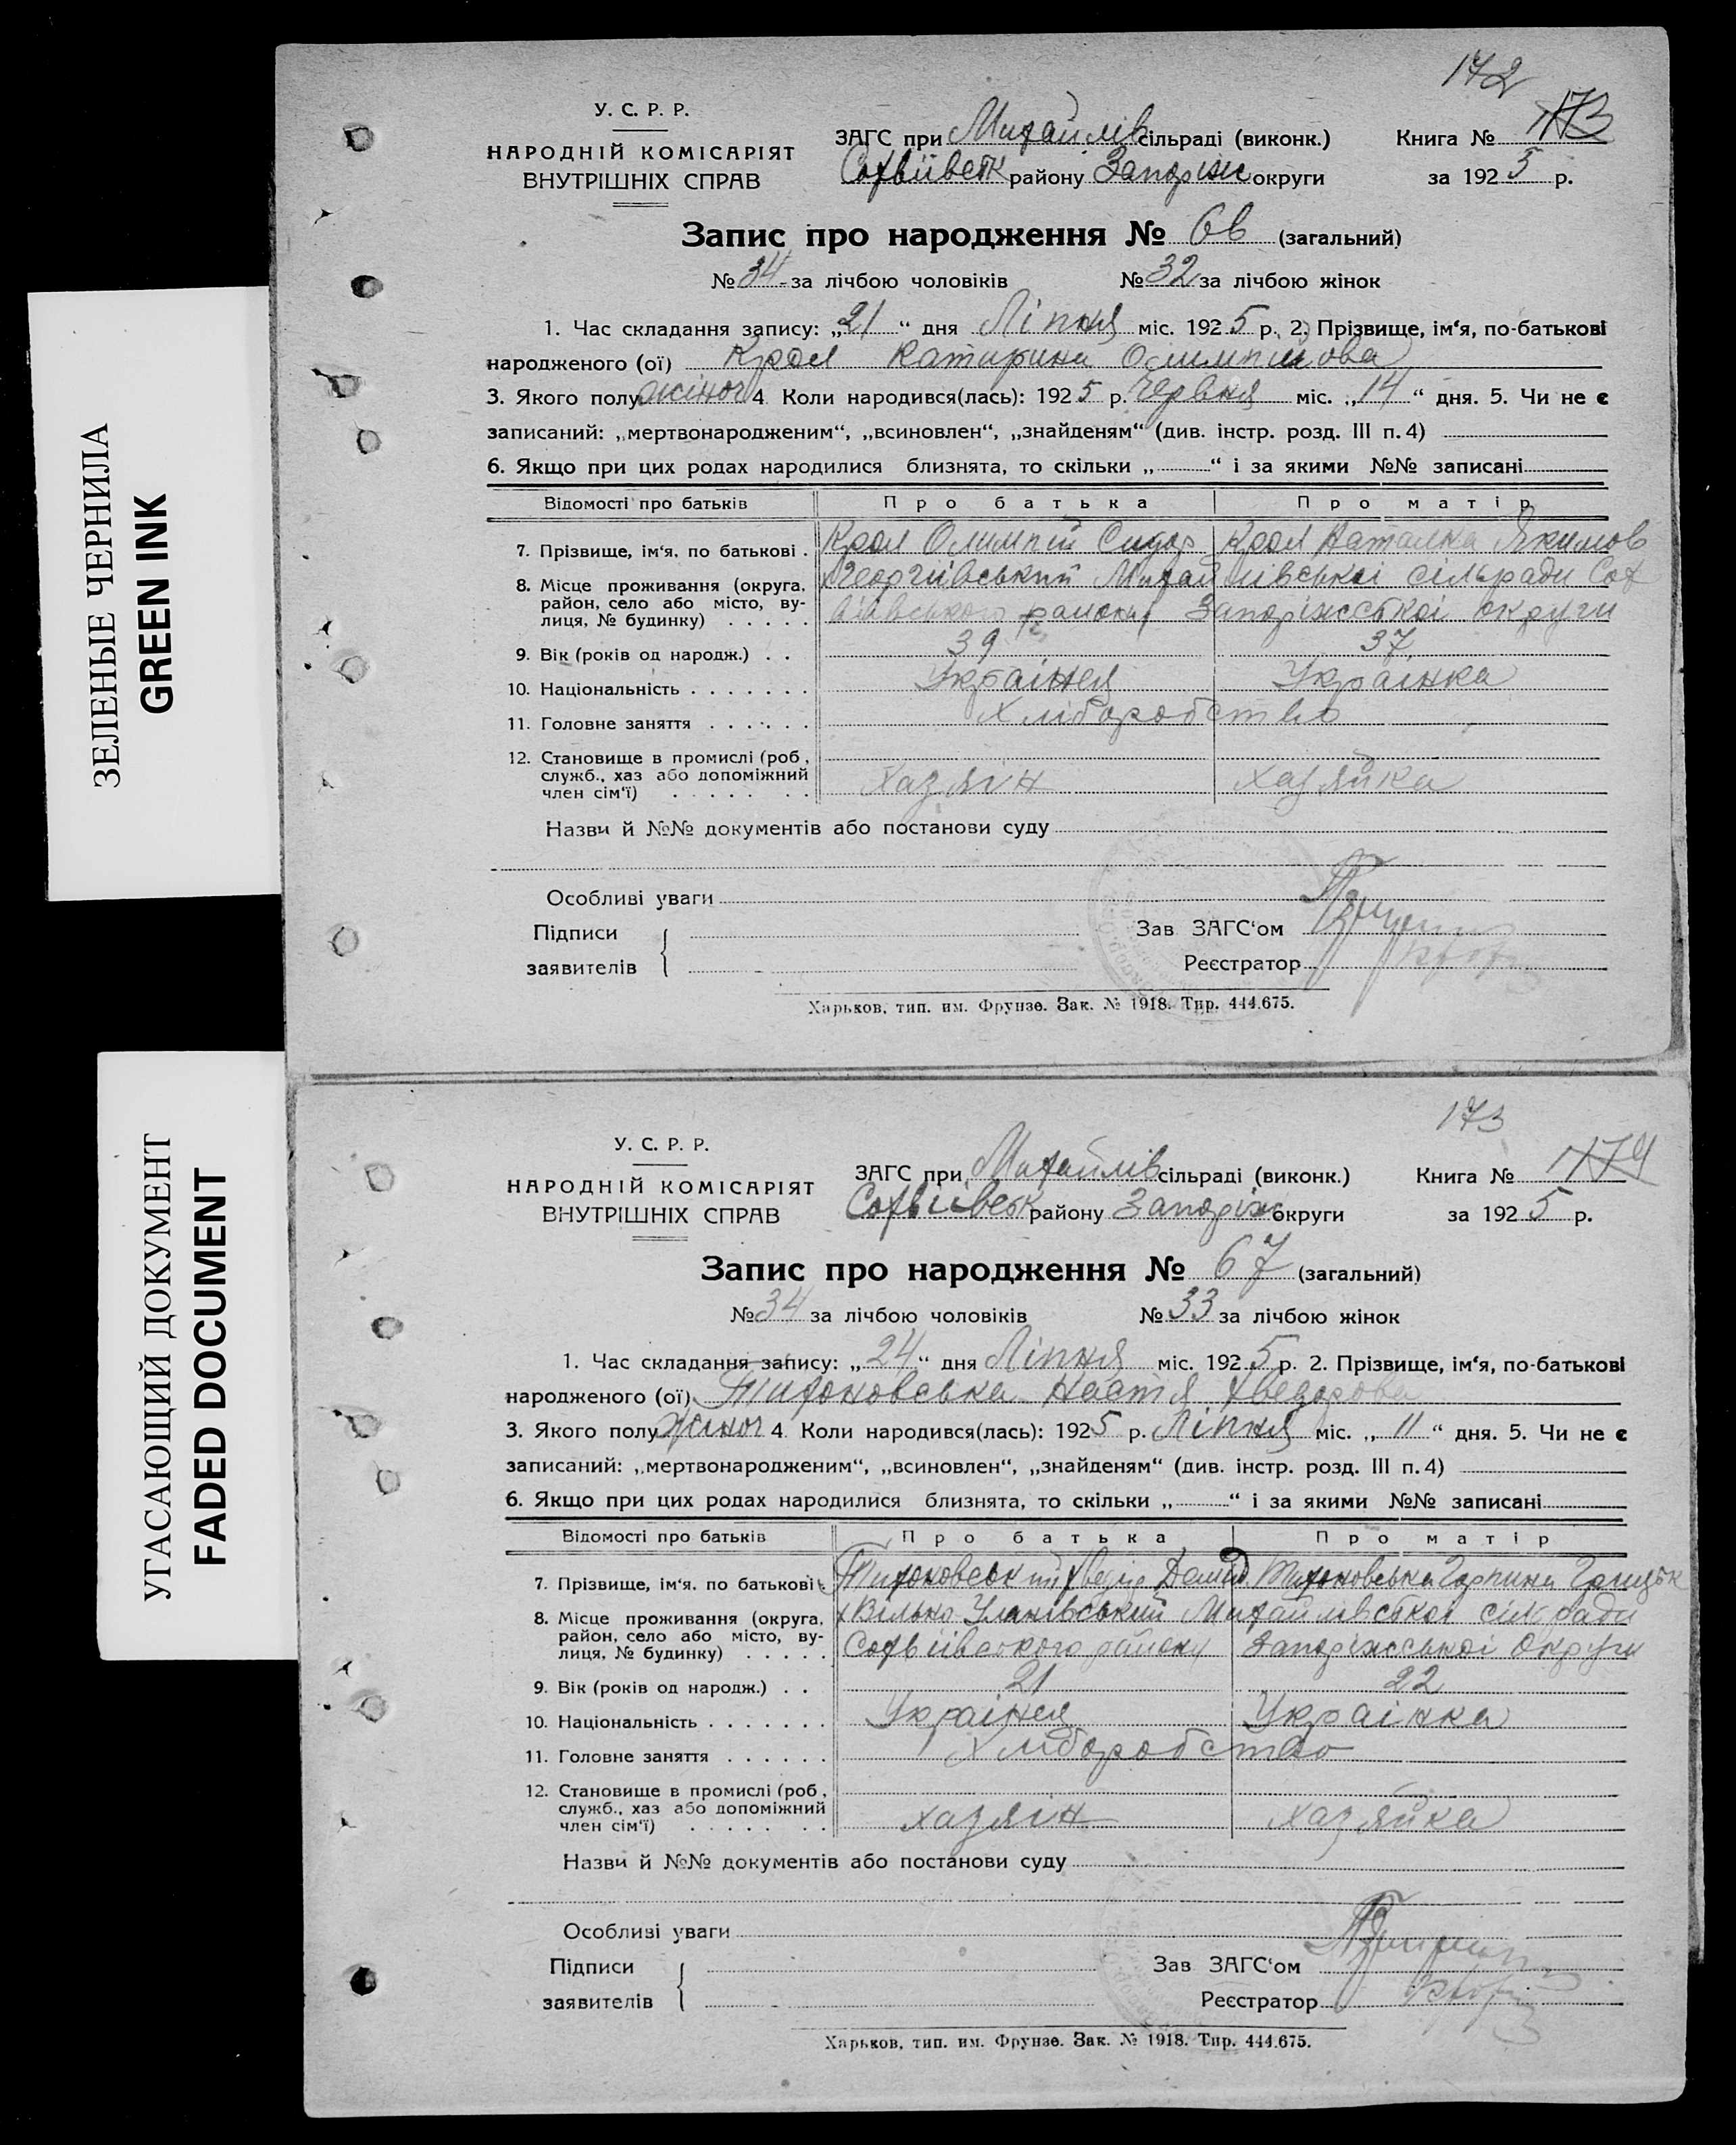 ЗЕЛЕНЫЕ ЧЕРНИЛА
GREEN INK
172
У. С. Р. Р.
НАРОДНІЙ КОМІСАРІЯТ
ВНУТРІШНІХ СПРАВ
ЗАГС при Михайлів сільраді (виконк.) Книга № 173
Софіївськ району Запоріж округи за 1925 р.
Запис про народження № 66 (загальний)
№ 34 за лічбою чоловіків № 32 за лічбою жінок
1. Час складання запису: „21“ дня Ліпня міс. 1925 р. 2. Прізвище, ім‘я, по-батькові
народженого (ої) Крол Катирина Олимпійова
3. Якого полу жіноч 4 Коли народився(лась): 1925 р. Червня міс. „14“ дня. 5. Чи не є
записаний: „мертвонародженим“, „всиновлен“, „знайденям“ (див. інстр. розд. III п. 4)
6. Якщо при цих родах народилися близнята, то скільки „ “ і за якими №№ записані
Відомості про батьків Про батька Про матір
7. Прізвище, ім‘я, по батькові . Крол Олимпій Сидор Крол Наталка Якимов
8. Місце проживання (округа, район, село або місто, вулиця, № будинку) х Георгіївський Михайлівської сільради Соф
іївського району Запоріжської округи
9. Вік (років од народж.) . . 39 37
10. Національність . . . . . . . Українец Українка
11. Головне заняття . . . . . . Хліборобство
12. Становище в промислі (роб., служб., хаз або допоміжний член сім‘ї) . . . . . . . Хазяін хазяйка
Назви й №№ документів або постанови суду
Особливі уваги
Підписи Зав ЗАГС‘ом
заявителів Реєстратор
Харьков, тип. им. Фрунзе. Зак. № 1918. Тир. 444.675.
УГАСАЮЩИЙ ДОКУМЕНТ
FADED DOCUMENT
173
У. С. Р. Р.
НАРОДНІЙ КОМІСАРІЯТ
ВНУТРІШНІХ СПРАВ
ЗАГС при Михайлів сільраді (виконк.) Книга № 174
Софіївськ району Запоріж округи за 1925 р.
Запис про народження № 67 (загальний)
№ 34 за лічбою чоловіків № 33 за лічбою жінок
1. Час складання запису: „24“ дня Ліпня міс. 1925 р. 2. Прізвище, ім‘я, по-батькові
народженого (ої) Тихоновська Настя Хведорова
3. Якого полу жіноч 4 Коли народився(лась): 1925 р. Ліпня міс. „11“ дня. 5. Чи не є
записаний: „мертвонародженим“, „всиновлен“, „знайденям“ (див. інстр. розд. III п. 4)
6. Якщо при цих родах народилися близнята, то скільки „ “ і за якими №№ записані
Відомості про батьків Про батька Про матір
7. Прізвище, ім‘я. по батькові . Тихоновський Хведір Демид Тихоновська Горпина Грицьк
8. Місце проживання (округа, район, село або місто, вулиця, № будинку) х Вільно Улянівський Михайлівської сільради
Софіївського району Запоріжської округи
9. Вік (років од народж.) . . 21 22
10. Національність . . . . . . . Українец Українка
11. Головне заняття . . . . . . Хліборобство
12. Становище в промислі (роб., служб., хаз або допоміжний член сім‘ї) . . . . . . . хазяін хазяйка
Назви й №№ документів або постанови суду
Особливі уваги
Підписи Зав ЗАГС‘ом
заявителів Реєстратор
Харьков, тип. им. Фрунзе. Зак. № 1918. Тир. 444.675.